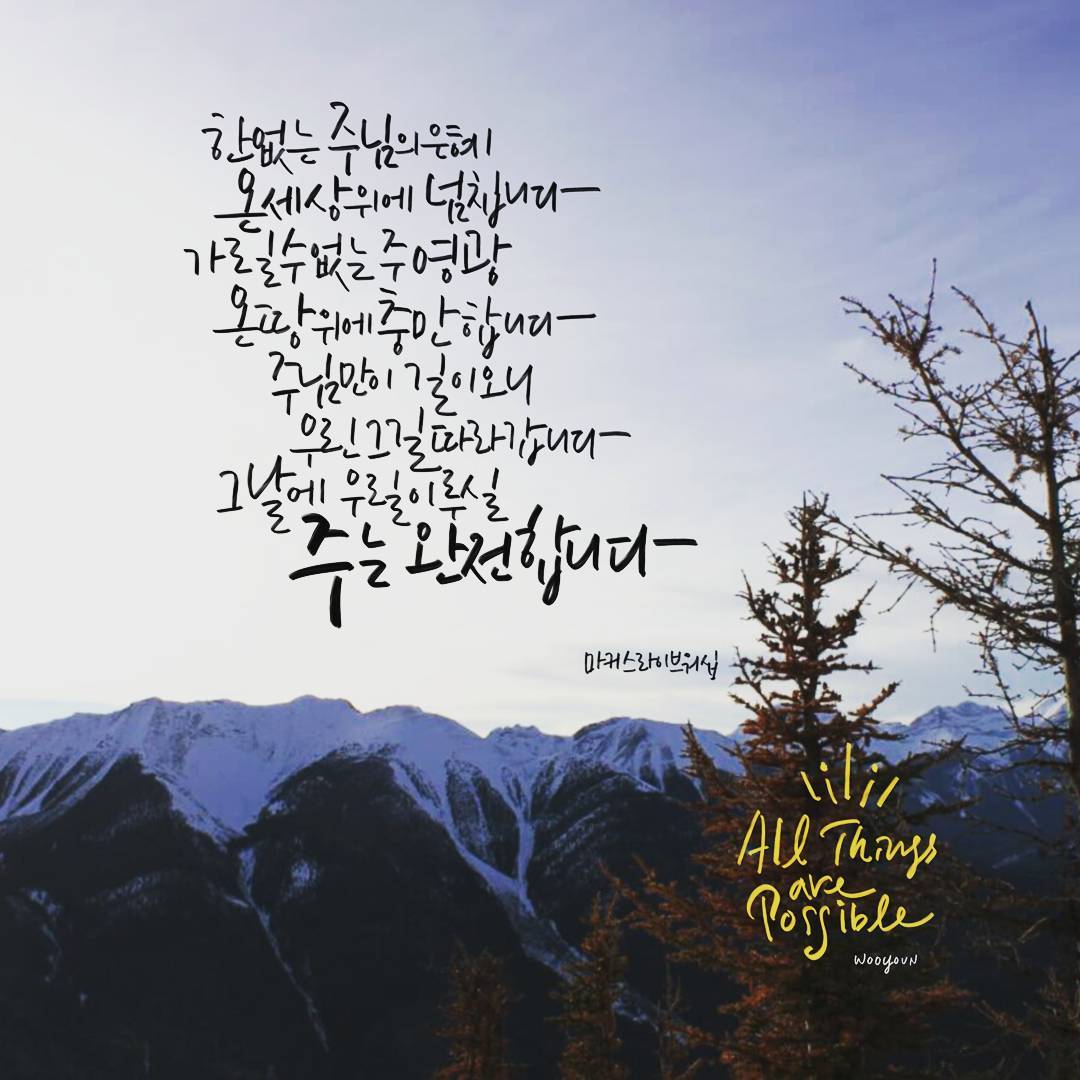 한없는 주님의 은혜
온 세상 위에 넘칩니다
가로릴 수 없는 주 영광
온 땅 위에 충만합니다
주님만이 길이오니
우린 그 길 따라갑니다
그날에 우릴 이루실
주는 완전합니다
마커스라이브워십
All Things
are
Possible
WOOYOUN